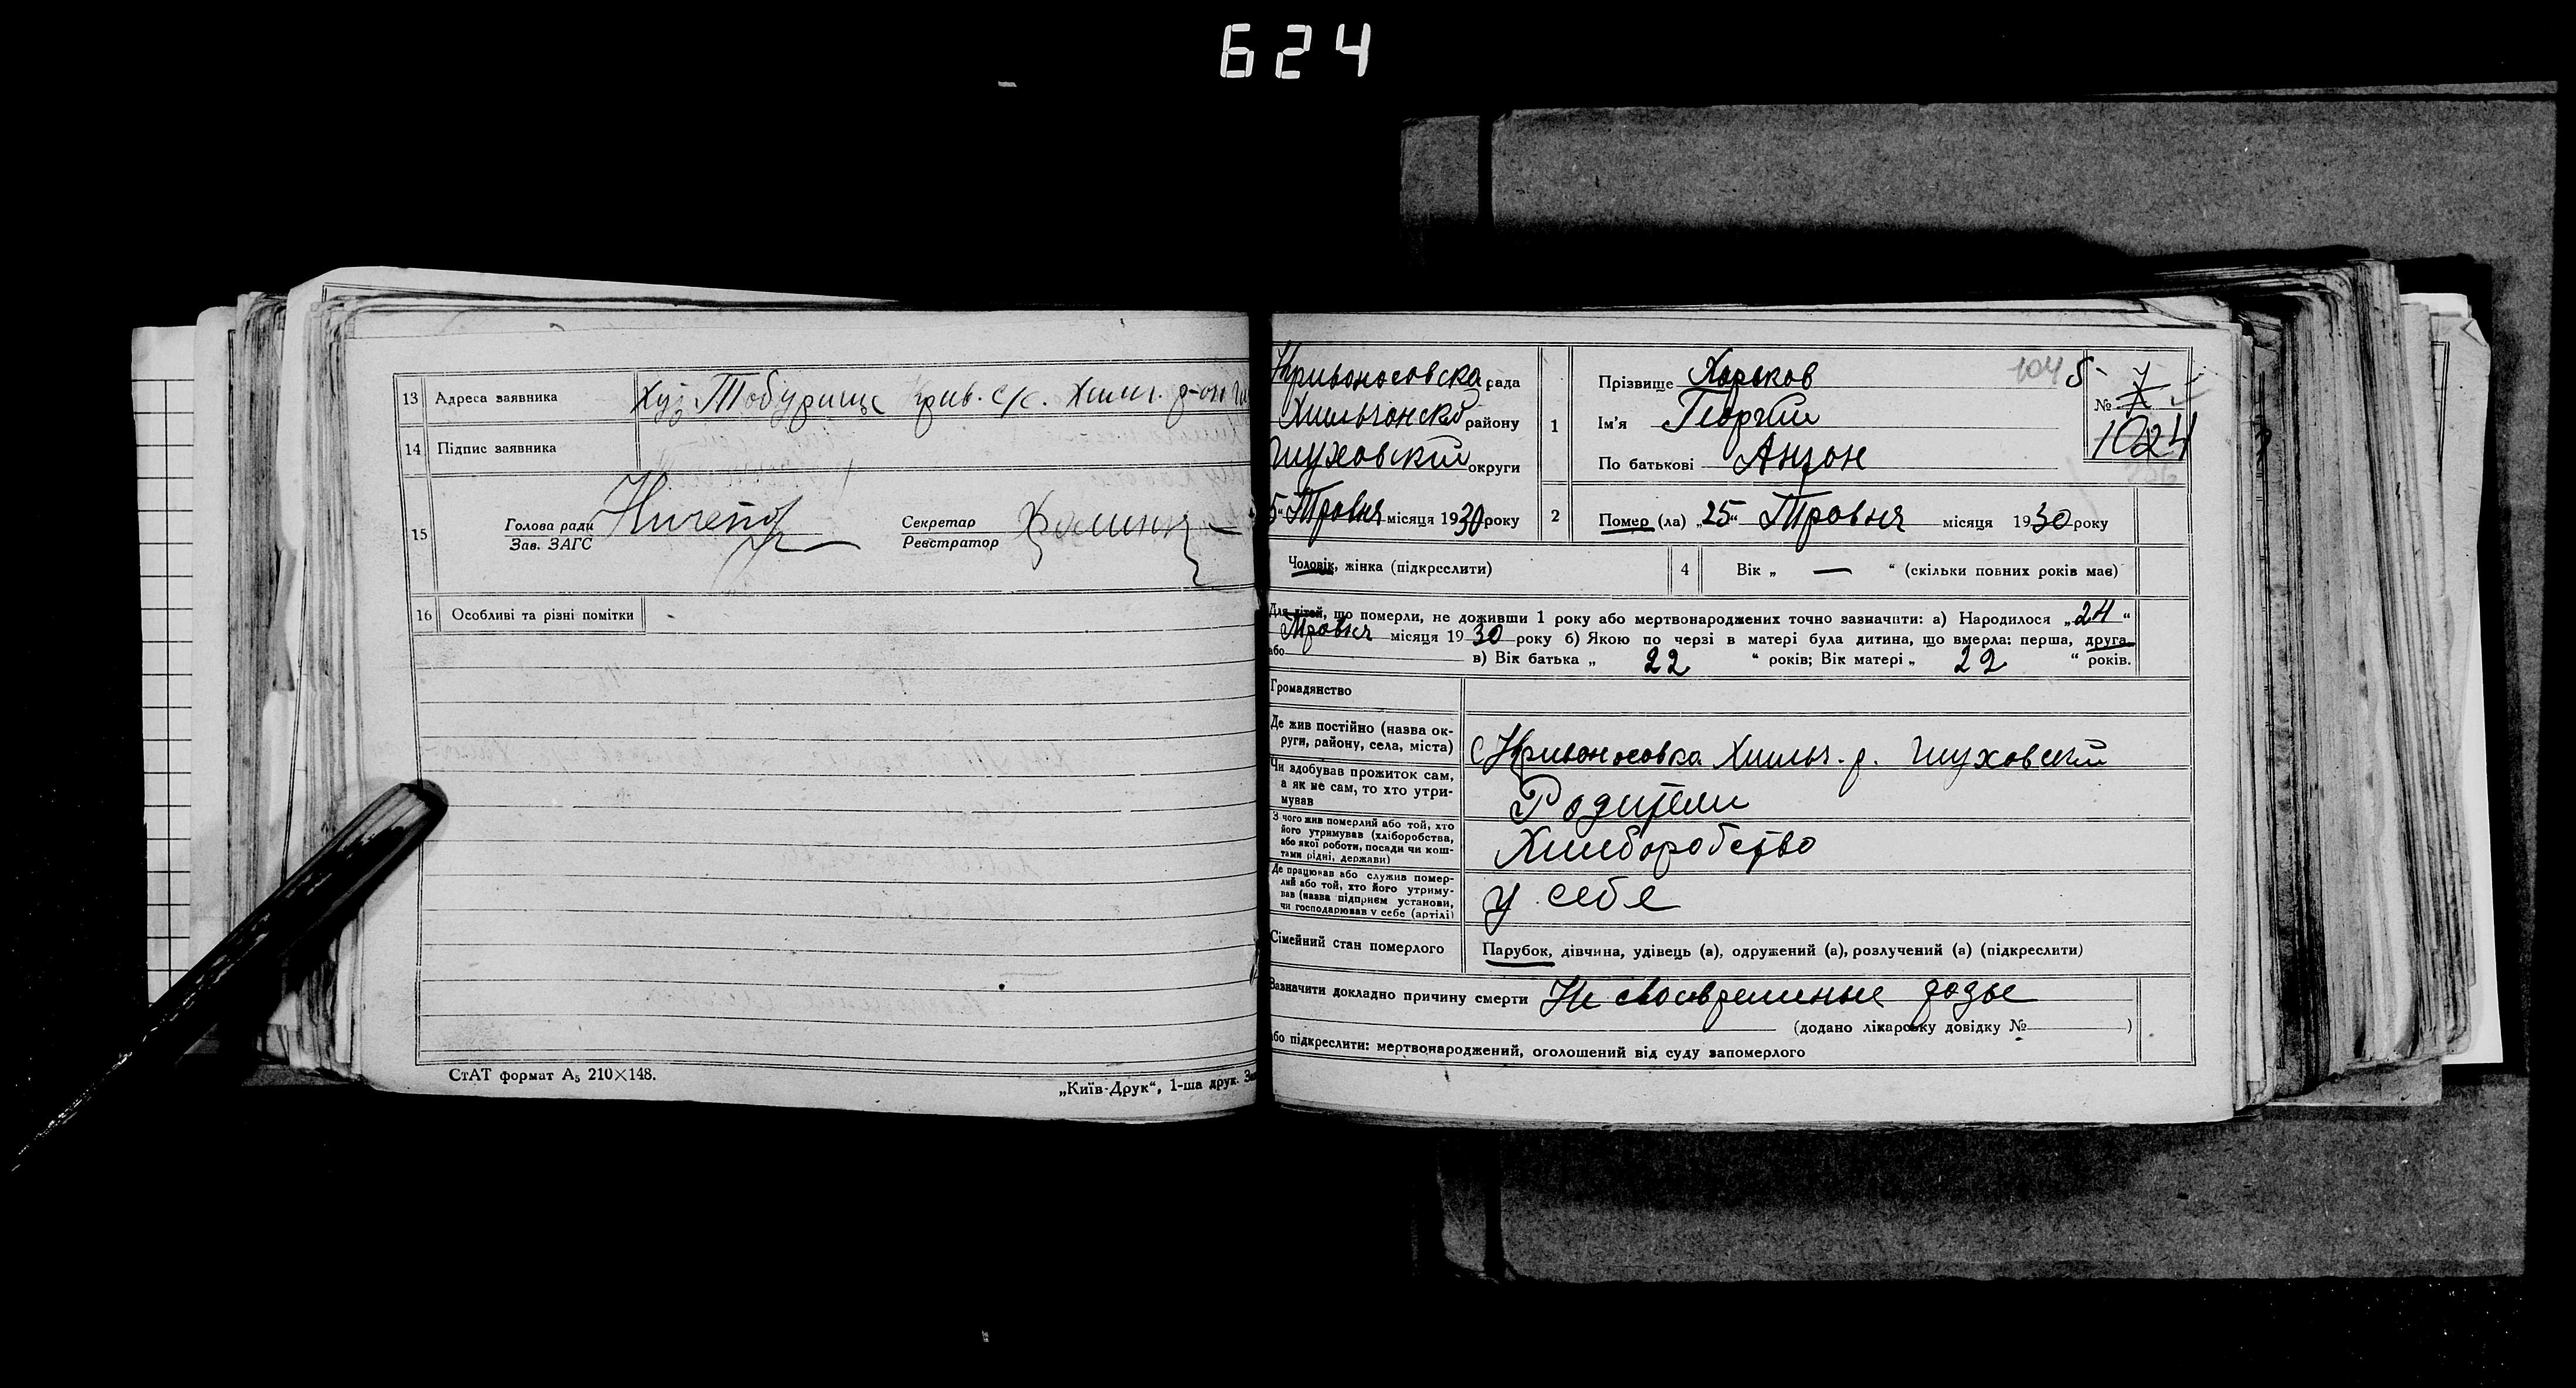 624
13 Адреса заявника Хут Тобурище Крив. с/с. Хильч. р-он
14 Підпис заявника
15 Голова ради Секретар
Зав. ЗАГС Реєстратор
16 Особливі та різні помітки
СтАТ формат А₅ 210×148.
„Київ-Друк“, 1-ша друк.
Кривоносовска рада
Хильчанско району
Глуховский округи
5“ Травня місяця 1930 року
1 Прізвище Харьков
Ім’я Георгий
По батькові Антон
104 5
№ 7
1024
2 Помер (ла) „25“ Травня місяця 1930 року
Чоловік, жінка (підкреслити)
4 Вік „ — “ (скільки повних років має)
Для дітей, що померли, не доживши 1 року або мертвонароджених точно зазначити: а) Народилося „24“
Травня місяця 1930 року б) Якою по черзі в матері була дитина, що вмерла: перша, друга
або в) Вік батька „ 22 “ років; Вік матері „ 22 “ років.
Громадянство
Де жив постійно (назва ок-
руги, району, села, міста) с Кривоносовка Хильч. р. Глуховский
Чи здобував прожиток сам,
а як не сам, то хто утри-
мував Родители
З чого жив померлий або той, хто
його утримував (хліборобства,
або якої роботи, посади чи кош-
тами рідні, держави) Хлиборобство
Де працював або служив помер-
лий або той, хто його утриму-
вав (назва підприєм установи,
чи господарював у себе (артілі) у себе
Сімейний стан померлого Парубок, дівчина, удівець (а), одружений (а), розлучений (а) (підкреслити)
Зазначити докладно причину смерти Не своевременые роды
(додано лікарську довідку № )
або підкреслити: мертвонароджений, оголошений від суду запомерлого